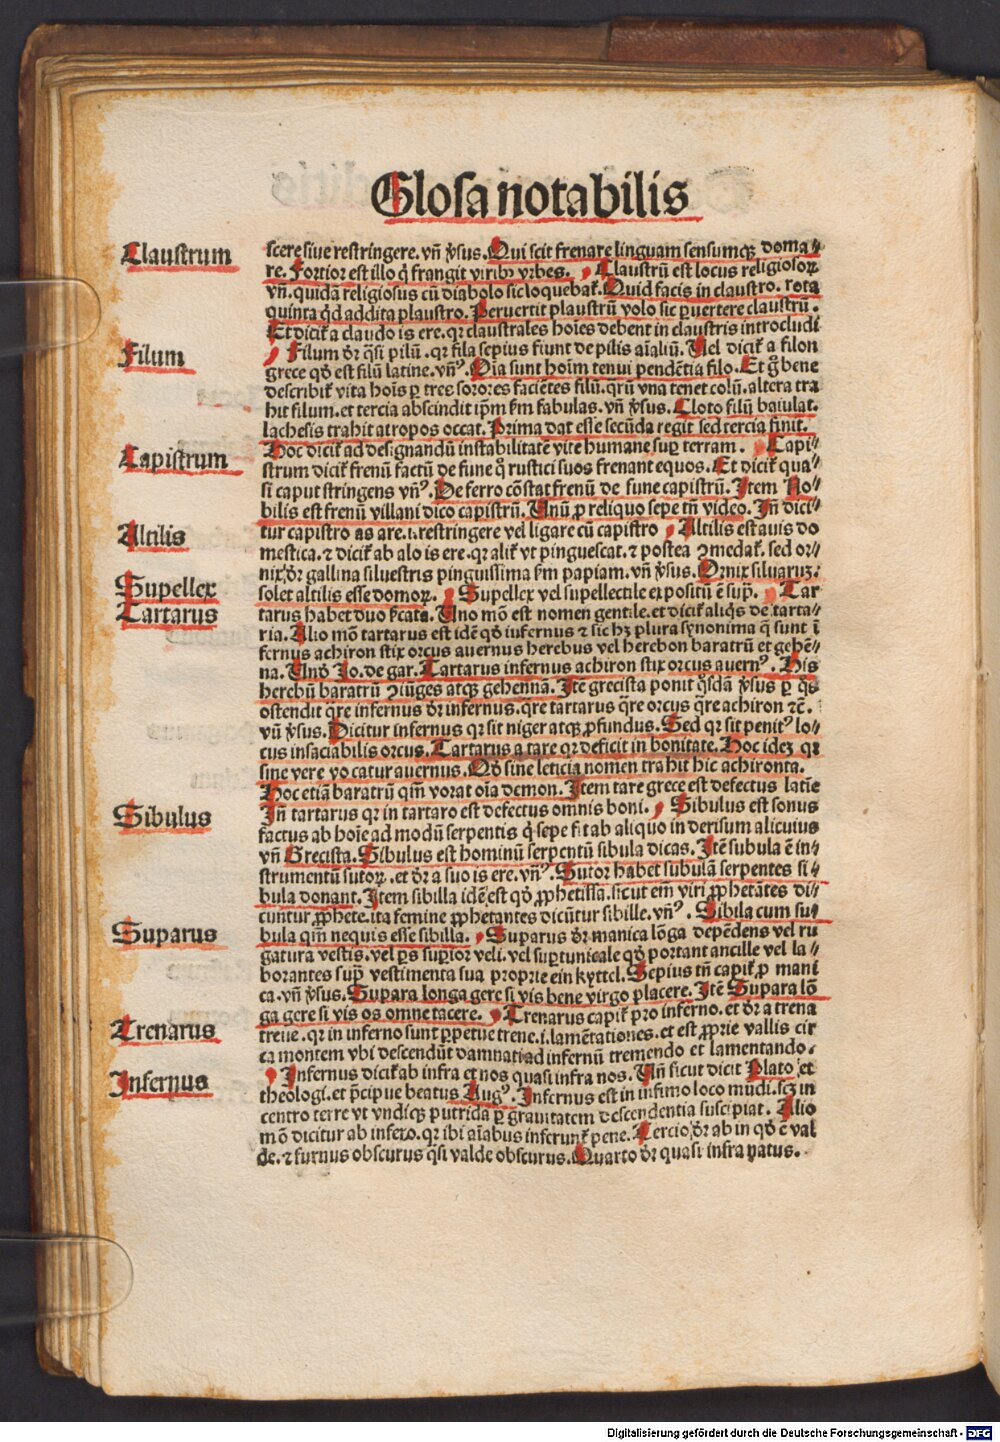 Glosa notabilis
Claustrum
scere siue restringere. vñ ꝟsus. Qui scit frenare linguam sensumqꝫ doma⸗
re. Fortior est illo q̇ frangit viribꝰ vrbes. Claustrū est locus religiosoꝝ
vñ. quidā religiosus cū diabolo sic loquebat᷑. Quid facis in claustro. rota
quinta q̇d addita plaustro. Peruertit plaustrū volo sic ꝑuertere claustrū.
Et dicit᷑ a claudo is ere. qꝛ claustrales hoīes debent in claustris introcludi
Filum
Filum dr̄ q̄si pilū. qꝛ fila sepius fiunt de pilis aīaliū. Uel dicit᷑ a filon
grece qd̓ est filū latine. vnꝰ. Oīa sunt hoīm tenui pendētia filo. Et g̊ bene
describit᷑ vita hoīs ꝑ tres sorores faciētes filū. qꝛū vna tenet colū. altera tra
hit filum. et tercia abscindit ip̄m ẜm fabulas. vñ ꝟsus. Cloto filū baiulat.
lachesis trahit atropos occat. Prima dat esse secūda regit sed tercia finit.
Hoc dicit᷑ ad designandū instabilitatē vite humane suꝑ terram. Capi⸗
Capistrum
strum dicit᷑ frenū factū de fune q̄ rustici suos frenant equos. Et dicit᷑ qua⸗
si caput stringens vnꝰ. De ferro cōstat frenū de fune capistrū. Item No⸗
bilis est frenū villani dico capistrū. Unū ꝓ reliquo sepe tn̄ video. Iñ dici⸗
tur capistro as are. i. restringere vel ligare cū capistro Altilis est auis do
Altilis
mestica. ⁊ dicit᷑ ab alo is ere. qꝛ alit᷑ vt pinguescat. ⁊ postea ꝯmedat᷑. sed or⸗
nix dr̄ gallina siluestris pinguissima ẜm papiam. vñ ꝟsus. Ornix siluaruꝫ.
Supellex
solet altilis esse domoꝝ. Supellex vel supellectile exposituꝫ ē suꝑ. Tar
Tartarus
tarus habet duo ẜcata. Uno mō est nomen gentile. et dicit᷑ aliq̇s de tarta⸗
ria. Alio mō tartarus est idē qd̓ infernus ⁊ sic hꝫ plura synonima q̄ sunt ī
fernus achiron stix orcus auernus herebus vel herebon baratrū et gehē⸗
na. Unō Jo. de gar. Tartarus infernus achiron stix orcus auernꝰ. His
herebū baratrū ꝯiūges atqꝫ gehennā. Itē grecista ponit q̇sdā ꝟsus ꝑ q̇s
ostendit q̄re infernus dr̄ infernus. q̄re tartarus q̄re orcus q̄re achiron ⁊c̄.
vñ ꝟsus. Dicitur infernus qꝛ sit niger atqꝫ ꝓfundus. Sed qꝛ sit penitꝰ lo⸗
cus insaciabilis orcus. Tartarus a tare qꝛ deficit in bonitate. Hoc ideꝫ qꝛ
sine vere vocatur auernus. Qd̓ sine leticia nomen trahit hic achironta.
Hoc etiā baratrū qm̄ vorat oīa demon. Item tare grece est defectus latīe
Sibulus
Iñ tartarus qꝛ in tartaro est defectus omnis boni. Sibulus est sonus
factus ab hoīe ad modū serpentis q̇ sepe fit ab aliquo in derisum alicuius
vñ Grecista. Sibulus est hominū serpentū sibula dicas. Itē subula ē in⸗
strumentū sutoꝝ. et dr̄ a suo is ere. vnꝰ. Sutor habet subulā serpentes si⸗
bula donant. Item sibilla idē est qd̓ ꝓphetissa. sicut em̄ viri ꝓphetātes di⸗
cuntur ꝓphete. ita femine ꝓphetantes dicūtur sibille. vnꝰ. Sibila cum su⸗
Suparus
bula qm̄ nequis esse sibilla. Suparus dr̄ manica lōga depēdens vel ru
gatura vestis. vel ꝑs suꝑior veli. vel suꝑtunicale qd̓ portant ancille vel la⸗
borantes suꝑ vestimenta sua proprie ein kyttel. Sepius tn̄ capit᷑ ꝓ mani
ca. vñ ꝟsus. Supara longa gere si vis bene virgo placere. Itē Supara lō
ga gere si vis os omne tacere. Trenarus capit᷑ pro inferno. et dr̄ a trena
Trenarus
trene. qꝛ in inferno sunt ꝑpetue trene. i. lamētationes. et est ꝓprie vallis cir
ca montem vbi descendūt damnati ad infernū tremendo et lamentando.
Infernus
Infernus dicit᷑ ab infra et nos quasi infra nos. Uñ sicut dicit Plato et
theologi. et p̄cipue beatus Augꝰ. Infernus est in infimo loco mūdi. scꝫ in
centro terre vt vndiqꝫ putrida ꝑ grauitatem descendentia suscipiat. Alio
mō dicitur ab infero. qꝛ ibi aīabus inferunt᷑ pene. Tercio dr̄ ab in qd̓ ē val
de. ⁊ furnus obscurus q̄si valde obscurus. Quarto dr̄ quasi infra natus.
Digitalisierung gefördert durch die Deutsche Forschungsgemeinschaft - DFG